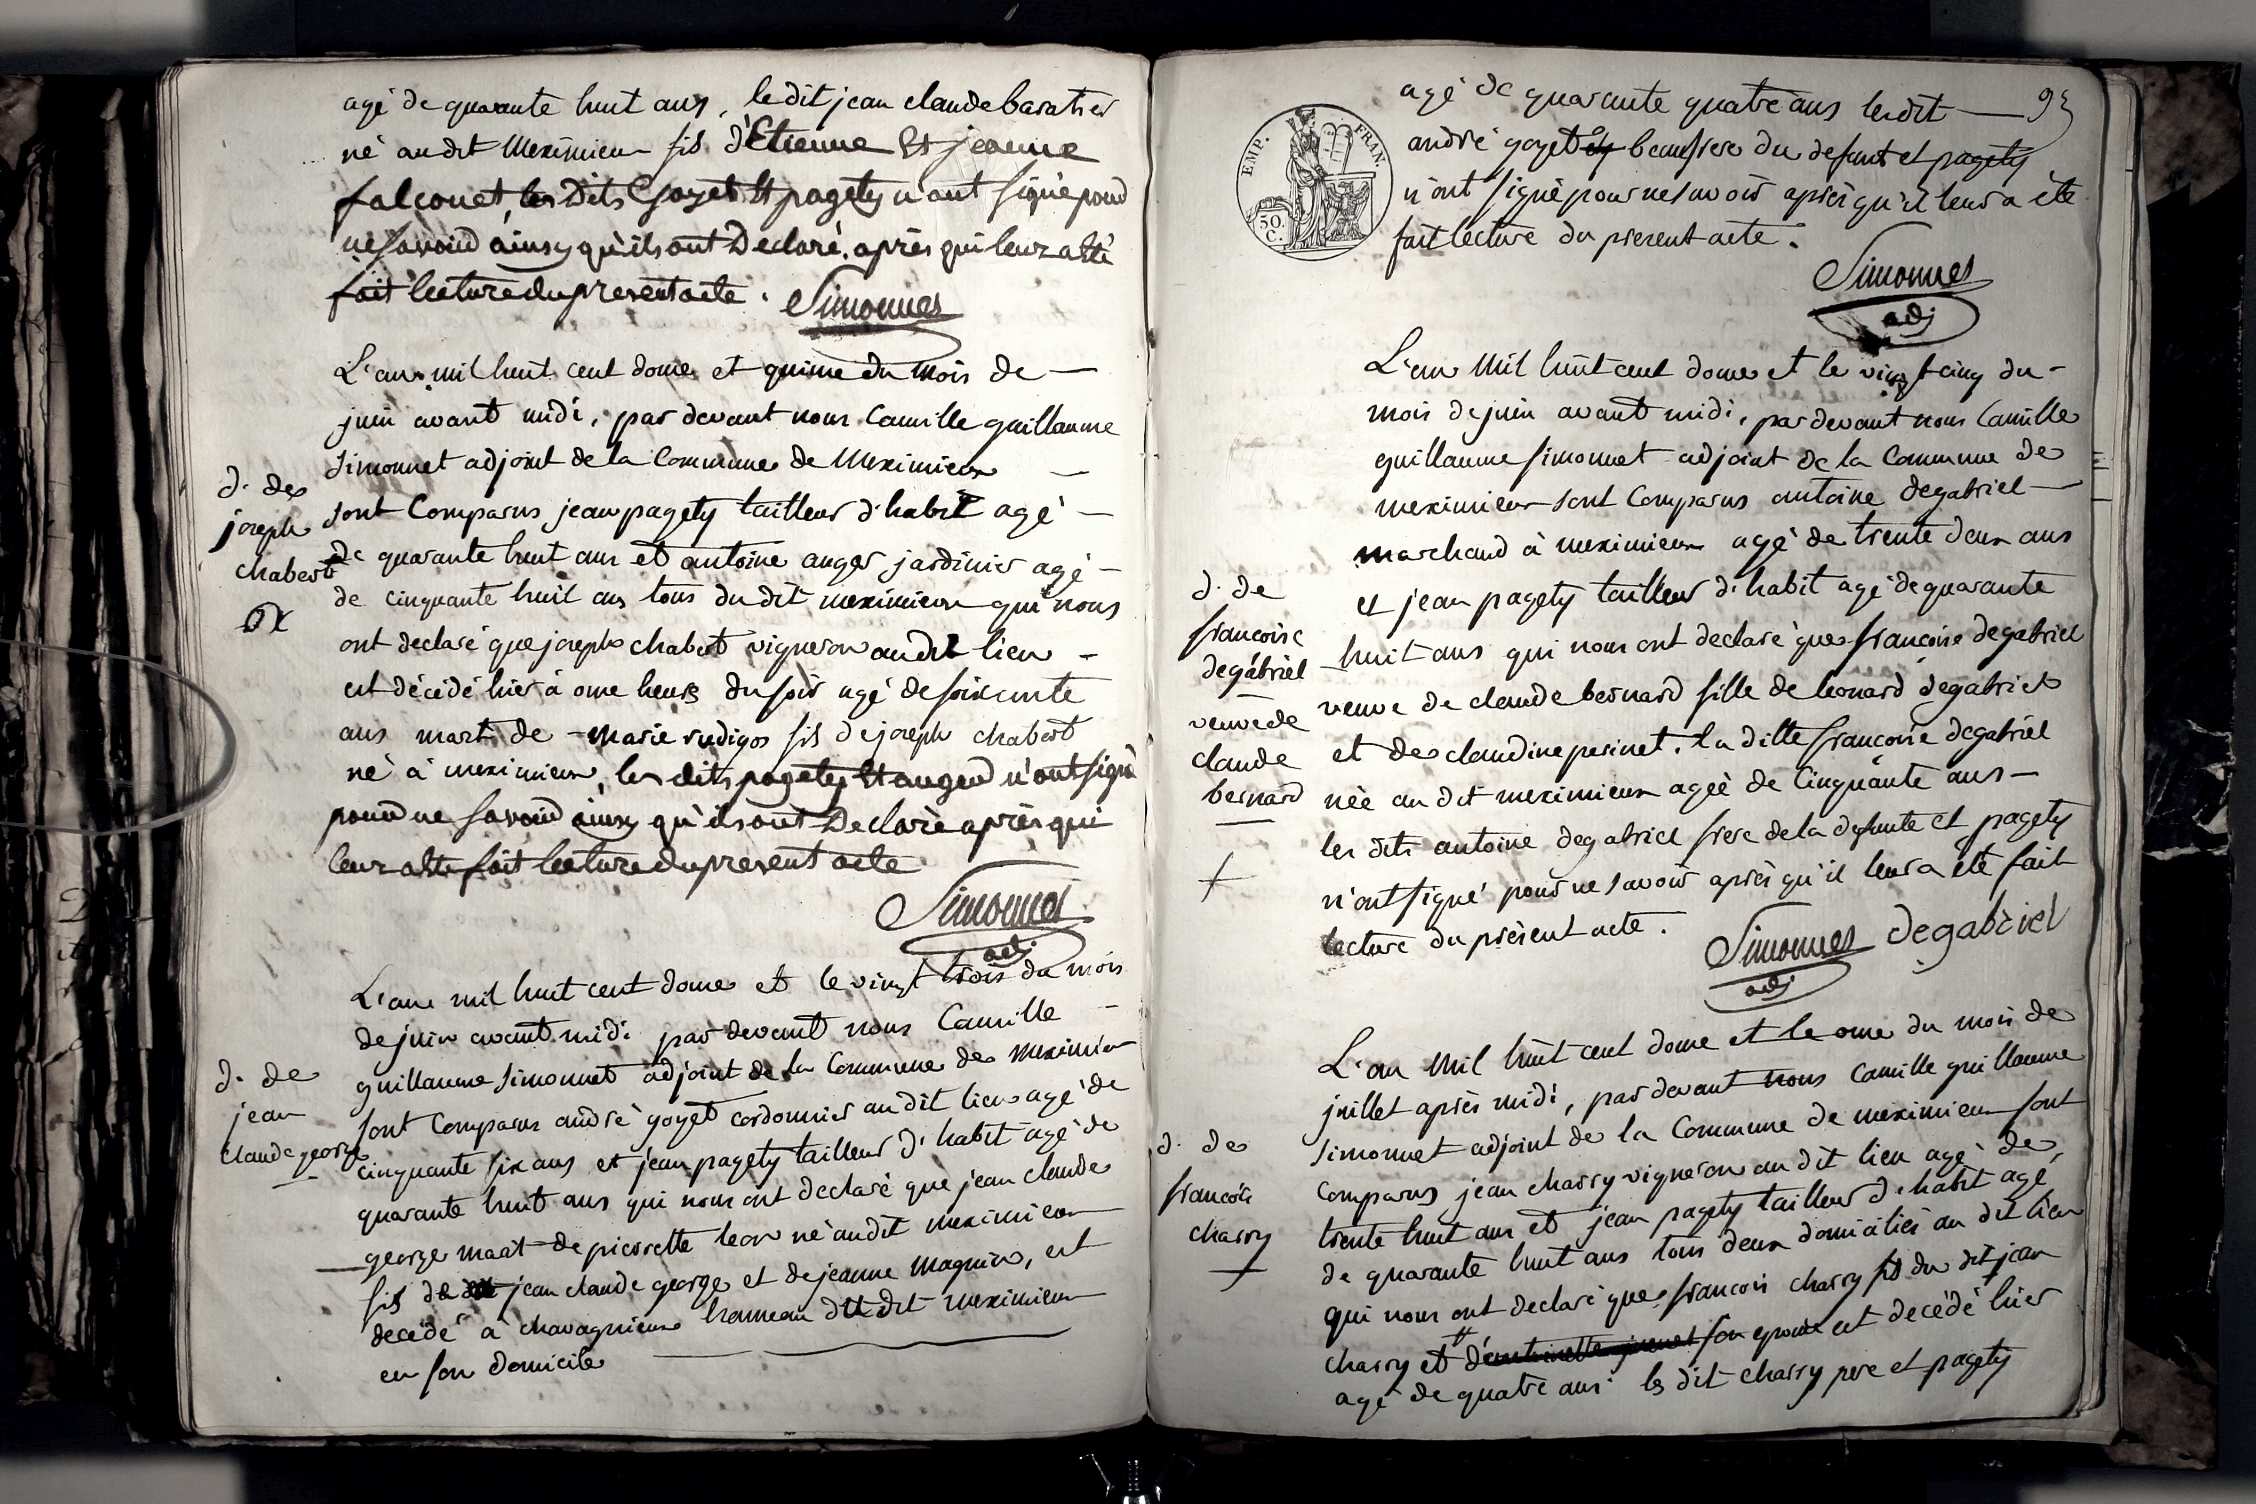 agé de quarante huit ans, le dit jean claude baratier
né au dit Meximieux fils d'Etienne Et jeanne
falconet, les Dits Goyet Et pagety n'ont signé pour
ne savoir ainsy qu'ils ont Declaré. après qui leur a été
fait lecture du present acte.
Simonnet
L'an mil huit cent douze et quinze du mois de
juin avant midi, par devant nous Camille guillaume
Simonnet adjoint de la Commune de Meximieux
d. de
joseph
chabert
sont Comparus jean pagety tailleur d'habit agé
de quarante huit ans et antoine auger jardinier agé
de cinquante huit ans tous du dit meximieux qui nous
ont declaré que joseph chabert vigneron au dit lieu
est décédé hier à onze heures du soir agé de soixante
ans mari de marie rudigoz fils de joseph chabert
né à meximieux, les dits pagety Et auger n'ont signé
pour ne savoir ainsy qu'ils ont Declaré après qui
leur a été fait lecture du present acte
Simonnet
adj.
L'an mil huit cent douze et le vingt trois du mois
de juin avant midi par devant nous Camille
guillaume Simonnet adjoint de la Commune de Meximieux
d. de
jean
claude george
sont Comparus andré goyet cordonnier au dit lieu agé de
cinquante six ans et jean pagety tailleur d'habit agé de
quarante huit ans qui nous ont declaré que jean claude
george mari de pierrette leon né au dit meximieux
fils de jean claude george et de jeanne magnin, est
decédé à chavagnieux hameau du dit meximieux
en son domicile
agé de quarante quatre ans les dit 93
EMP. FRAN.
50 C.
andré goyet beaufrere du defunt et pagety
n'ont signé pour ne savoir après qu'il leur a été
fait lecture du present acte.
Simonnet
adj
L'an Mil huit cent douze et le vingt cinq du
mois de juin avant midi, par devant nous Camille
guillaume simonnet adjoint de la Commune de
meximieux sont Comparus antoine degabriel
marchand à meximieux agé de trente deux ans
d. de
francoise
degabriel
veuve de
claude
bernard
et jean pagety tailleur d'habit agé de quarante
huit ans qui nous ont declaré que françoise degabriel
veuve de claude bernard fille de leonard degabriel
et de claudine perinet. la ditte francoise degabriel
née au dit meximieux agée de Cinquante ans
les dits antoine degabriel frere de la defunte et pagety
n'ont signé pour ne savoir après qu'il leur a été fait
lecture du présent acte.
Simonnet degabriel
adj
L'an Mil huit cent douze et le onze du mois de
juillet après midi, par devant nous Camille guillaume
Simonnet adjoint de la Commune de meximieux sont
d. de
francois
charry
comparus jean charry vigneron au dit lieu agé de
trente huit ans et jean pagety tailleur d'habit agé
de quarante huit ans tous deux domiciliés au dit lieu
qui nous ont declaré que francois charry fils du dit jean
charry et son epouse est decédé hier
agé de quatre ans les dit charry pere et pagety